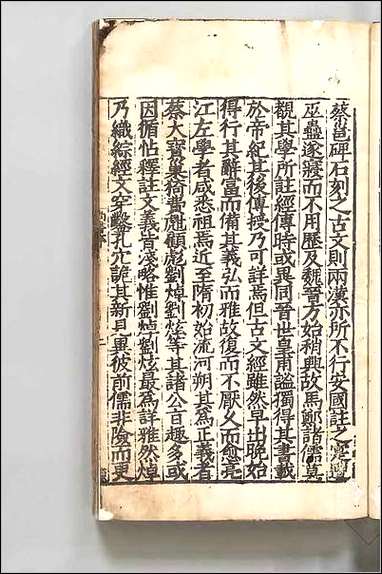 蔡邕碑石刻之古文則兩漢亦所不行安國註之寔遭
巫蠱遂寢而不用歷及魏晉方始稍興故馬鄭諸儒莫
覩其學所註經傳時或異同晉世皇甫謐獨得其書載
於帝紀其後傳授乃可詳焉但古文經雖然早出晚始
得行其辭富而備其義弘而雅故復而不厭久而愈亮
江左學者咸悉祖焉近至隋初始流河朔其爲正義者
蔡大寶巢猗費甝顧彪劉焯劉炫等其諸公旨趣多或
因循怗釋註文義皆淺略惟劉焯劉炫最爲詳雅然焯
乃織綜經文穿鑿孔穴詭其新見異彼前儒非險而更